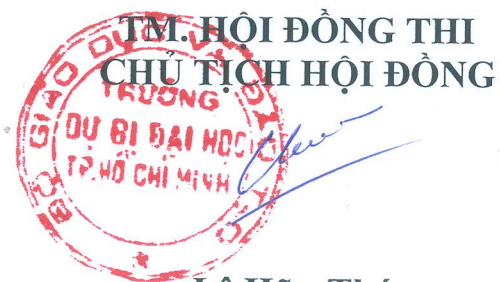 TM. HỘI ĐỒNG THI
CHỦ TỊCH HỘI ĐỒNG
BỘ GIÁO DỤC VÀ ĐÀO TẠO
TRƯỜNG
DỰ BỊ ĐẠI HỌC
TP.HỒ CHÍ MINH